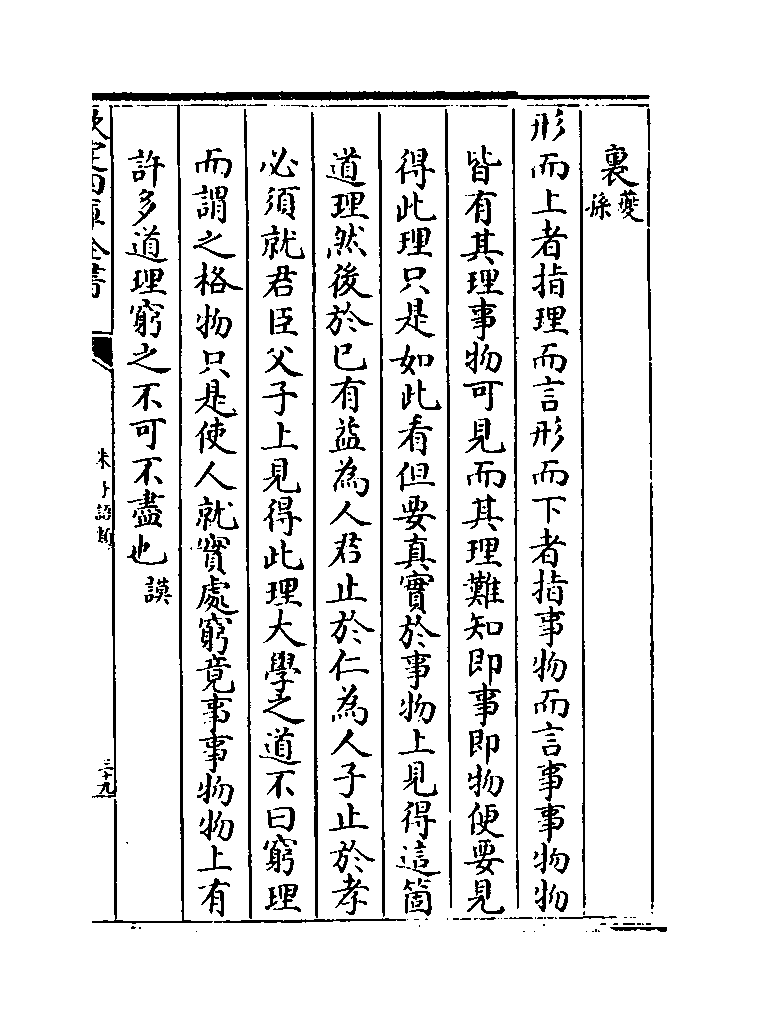 裏夔孫
形而上者指理而言形而下者指事物而言事事物物
皆有其理事物可見而其理難知即事即物便要見
得此理只是如此看但要真實於事物上見得這箇
道理然後於已有益為人君止於仁為人子止於孝
必須就君臣父子上見得此理大學之道不曰窮理
而謂之格物只是使人就實處窮竟事事物物上有
許多道理窮之不可不盡也謨
欽定四庫全書
朱子語類
三十九